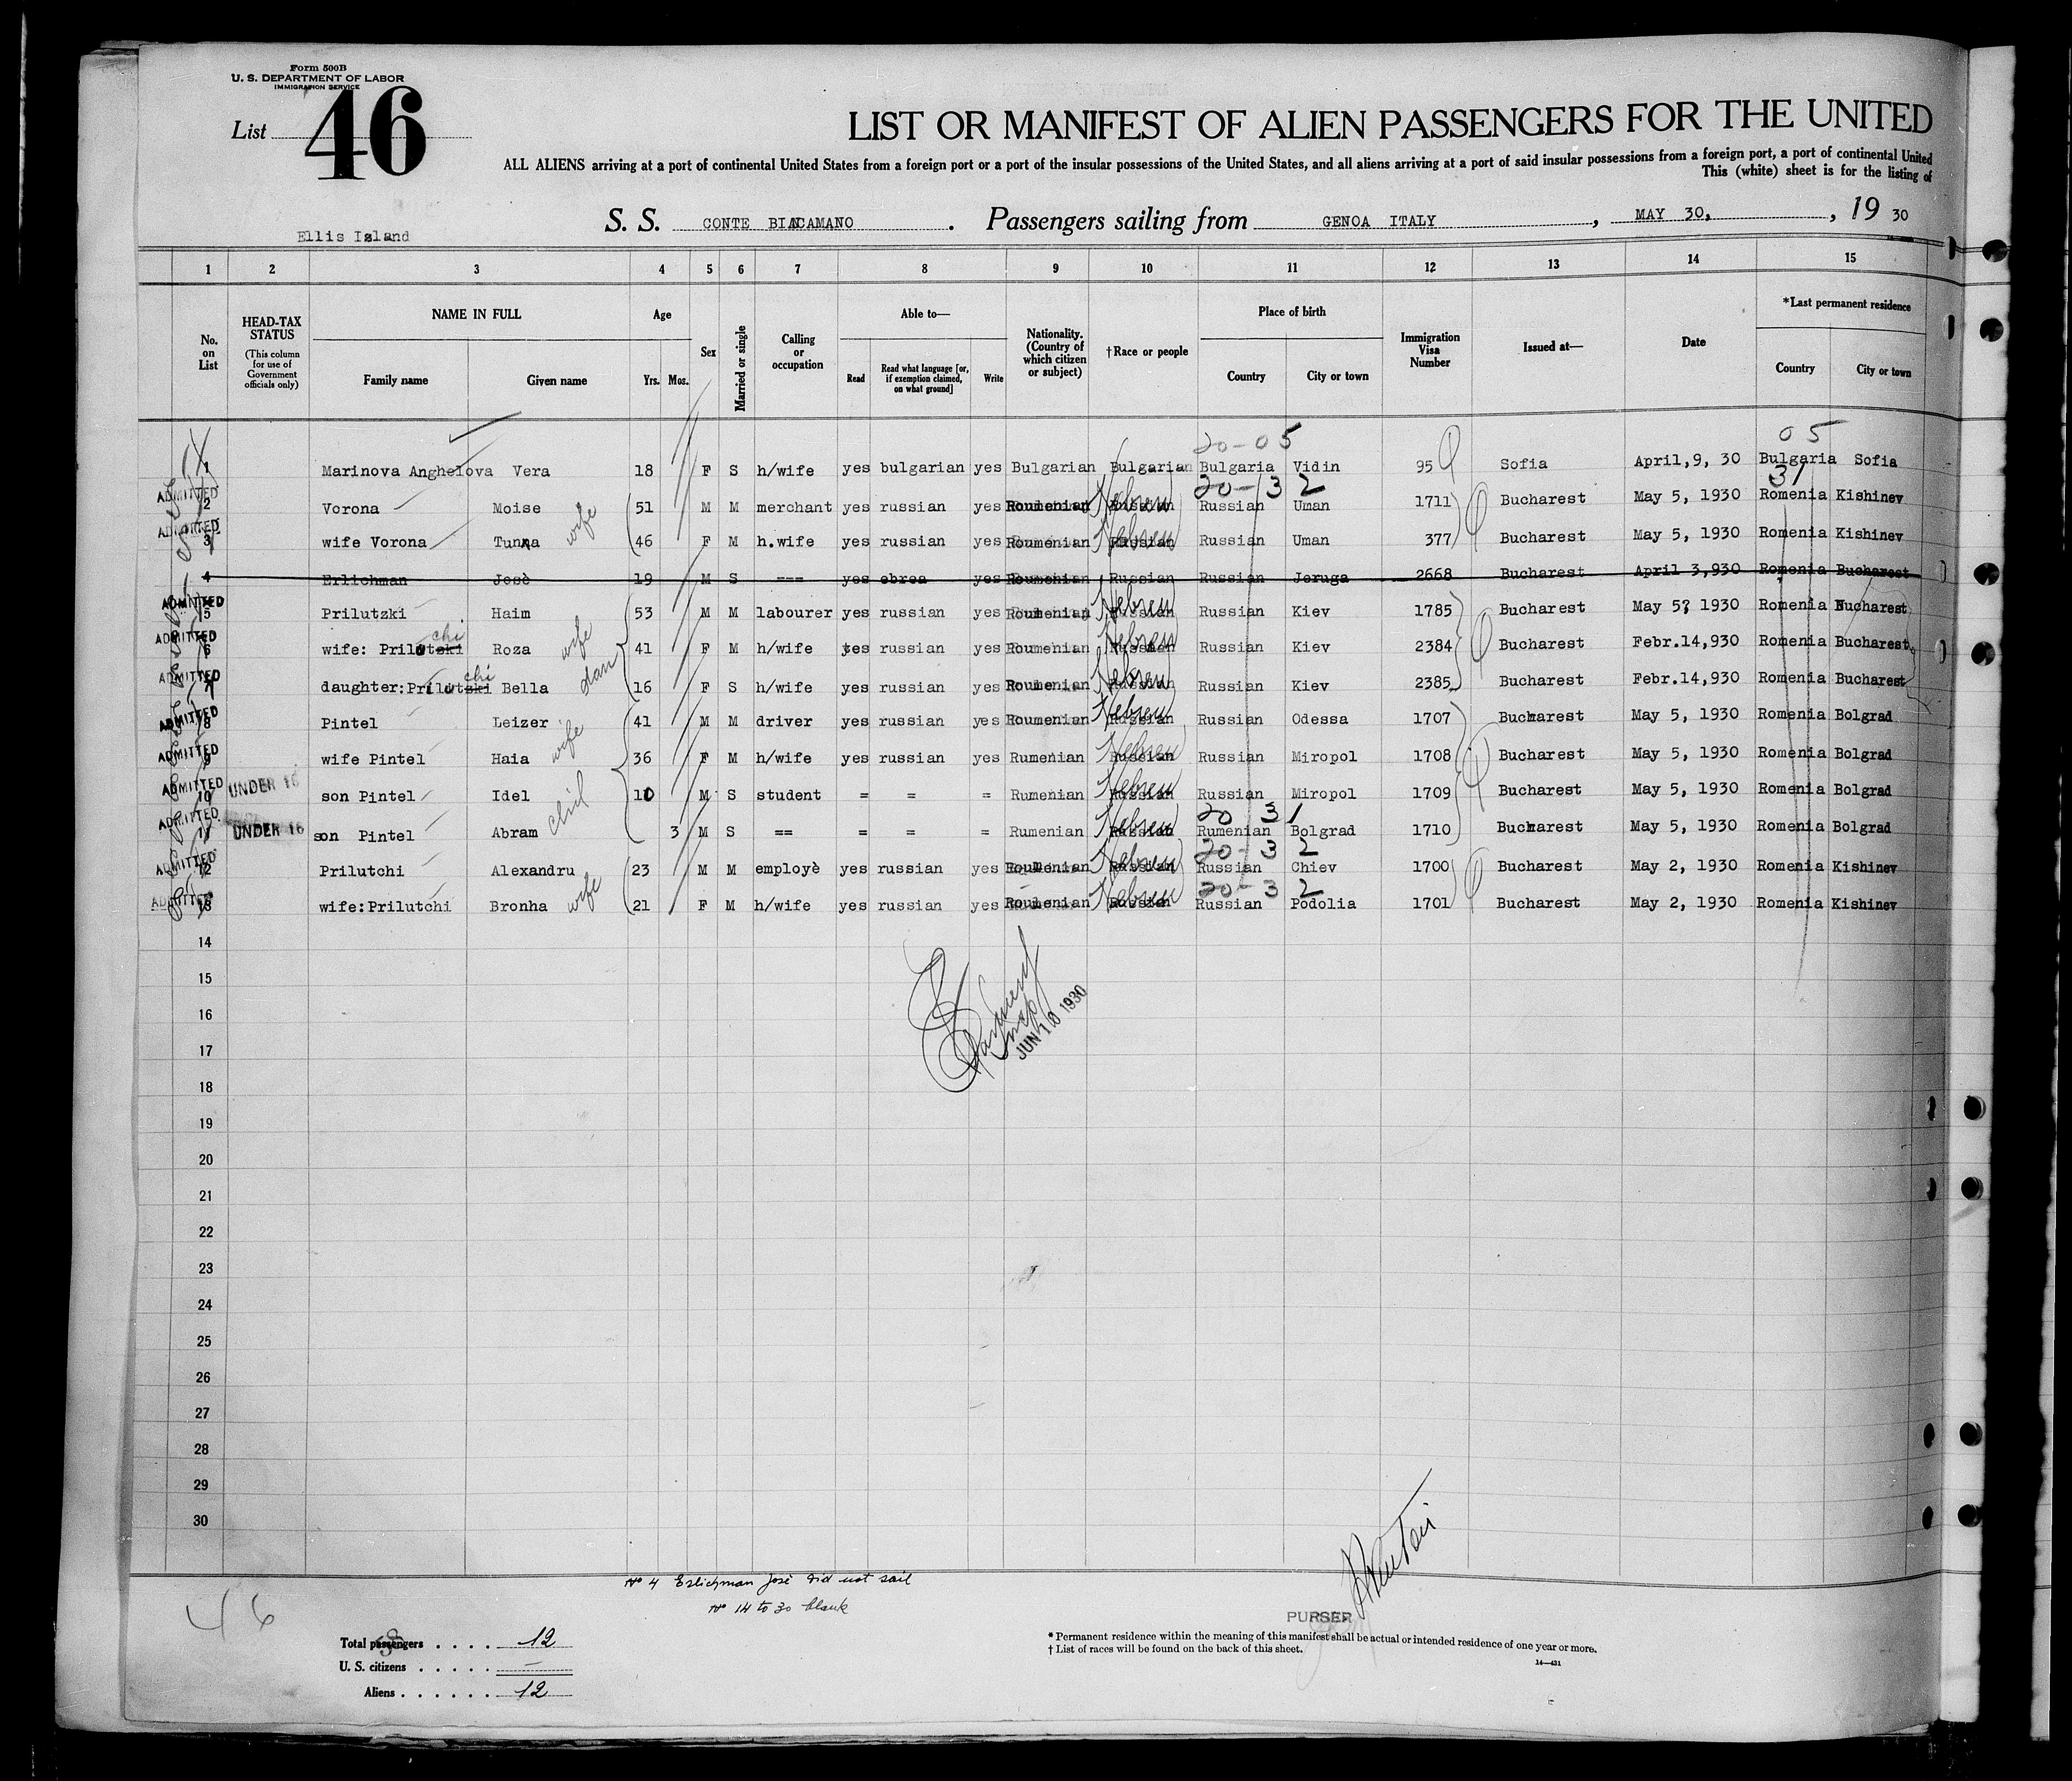 Form 500B
U. S. DEPARTMENT OF LABOR
IMMIGRATION SERVICE
List 46
LIST OR MANIFEST OF ALIEN PASSENGERS FOR THE UNITED
ALL ALIENS arriving at a port of continental United States from a foreign port or a port of the insular possessions of the United States, and all aliens arriving at a port of said insular possessions from a foreign port, a port of continental United
This (white) sheet is for the listing of
Ellis Island
S. S. CONTE BIANCAMANO . Passengers sailing from GENOA ITALY , MAY 30, , 19 30
1 2 3 4 5 6 7 8 9 10 11 12 13 14 15
No. on List
HEAD-TAX STATUS (This column for use of Government officials only)
NAME IN FULL Family name Given name
Age Yrs. Mos.
Sex
Married or single
Calling or occupation
Able to— Read Read what language [or, if exemption claimed, on what ground] Write
Nationality. (Country of which citizen or subject)
†Race or people
Place of birth Country City or town
Immigration Visa Number
Issued at—
Date
*Last permanent residence Country City or town
20-05 05
1 Marinova Anghelova Vera 18 F S h/wife yes bulgarian yes Bulgarian Bulgarian Bulgaria Vidin 95 Sofia April,9, 30 Bulgaria Sofia
20-3 2 31
ADMITTED 2 Vorona Moise 51 M M merchant yes russian yes Roumenian Russian Hebrew Russian Uman 1711 Bucharest May 5, 1930 Romenia Kishinev
ADMITTED 3 wife Vorona Tunna wife 46 F M h.wife yes russian yes Roumenian Russian Hebrew Russian Uman 377 Bucharest May 5, 1930 Romenia Kishinev
4 Erlichman Josè 19 M S --- yes ebrea yes Roumenian Russian Russian Jeruga 2668 Bucharest April 3,930 Romenia Bucharest
ADMITTED 5 Prilutzki Haim 53 M M labourer yes russian yes Roumenian Russian Hebrew Russian Kiev 1785 Bucharest May 5? 1930 Romenia Bucharest
ADMITTED 6 wife: Prilutski chi Roza wife 41 F M h/wife yes russian yes Roumenian Russian Hebrew Russian Kiev 2384 Bucharest Febr.14,930 Romenia Bucharest
ADMITTED 7 daughter:Prilutski chi Bella dau 16 F S h/wife yes russian yes Roumenian Russian Hebrew Russian Kiev 2385 Bucharest Febr.14,930 Romenia Bucharest
ADMITTED 8 Pintel Leizer 41 M M driver yes russian yes Roumenian Russian Hebrew Russian Odessa 1707 Bucharest May 5, 1930 Romenia Bolgrad
ADMITTED 9 wife Pintel Haia wife 36 F M h/wife yes russian yes Rumenian Russian Hebrew Russian Miropol 1708 Bucharest May 5, 1930 Romenia Bolgrad
ADMITTED 10 UNDER 16 son Pintel Idel 10 M S student = = = Rumenian Russian Hebrew Russian Miropol 1709 Bucharest May 5, 1930 Romenia Bolgrad
20 31
ADMITTED 11 UNDER 16 son Pintel Abram 3 M S == = = = Rumenian Russian Hebrew Rumenian Bolgrad 1710 Bucharest May 5, 1930 Romenia Bolgrad
20-3 2
ADMITTED 12 Prilutchi Alexandru 23 M M employè yes russian yes Roumenian Russian Hebrew Russian Chiev 1700 Bucharest May 2, 1930 Romenia Kishinev
20-3 2
ADMITTED 13 wife:Prilutchi Bronha wife 21 F M h/wife yes russian yes Roumenian Russian Hebrew Russian Podolia 1701 Bucharest May 2, 1930 Romenia Kishinev
14
15
16
JUN 10 1930
17
18
19
20
21
22
23
24
25
26
27
28
29
30
No 4 Erlichman Josè did not sail
No 14 to 30 blank
46
PURSER
Total passengers . . . . 12
U. S. citizens . . . . . —
Aliens . . . . . . 12
* Permanent residence within the meaning of this manifest shall be actual or intended residence of one year or more.
† List of races will be found on the back of this sheet.
14—421